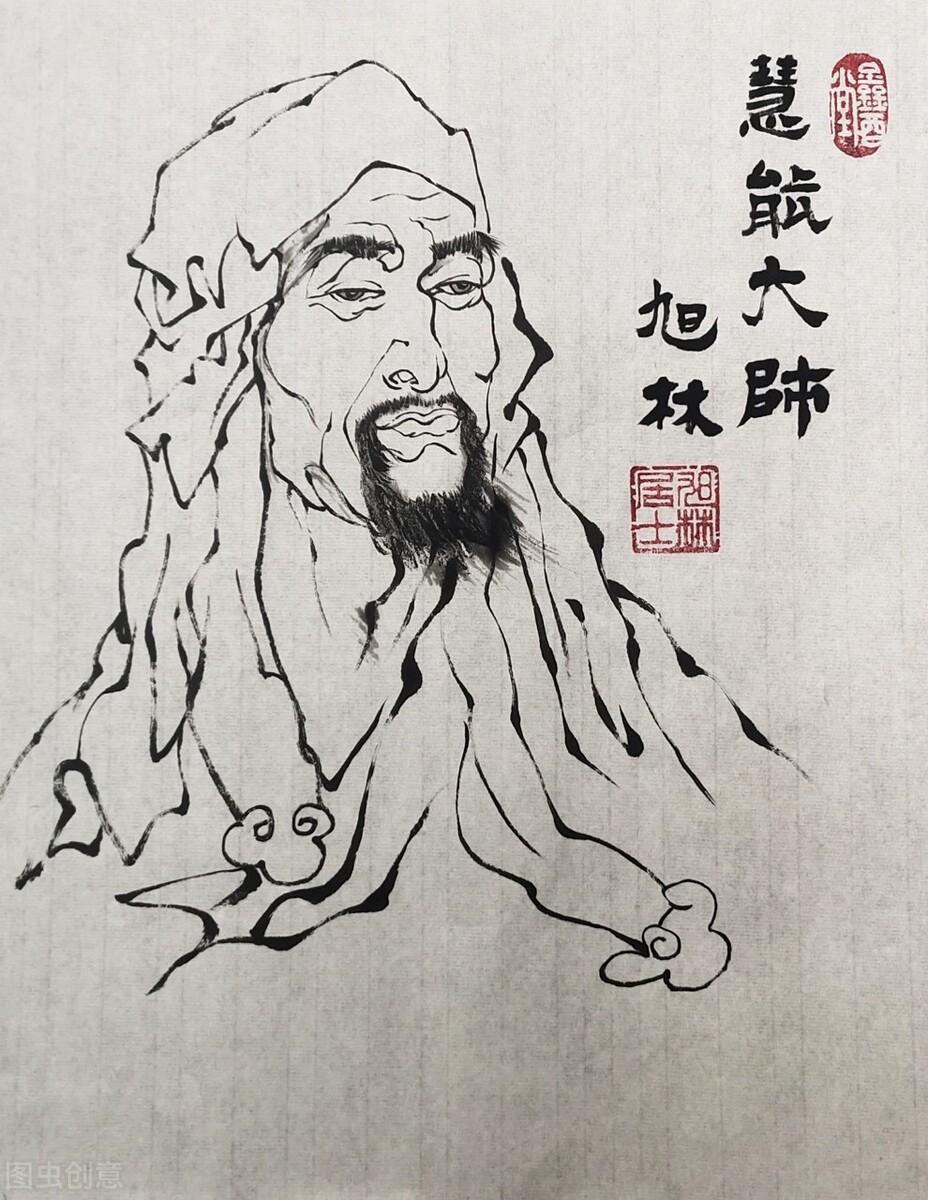 慧能大師
旭林
旭林居士
图虫创意